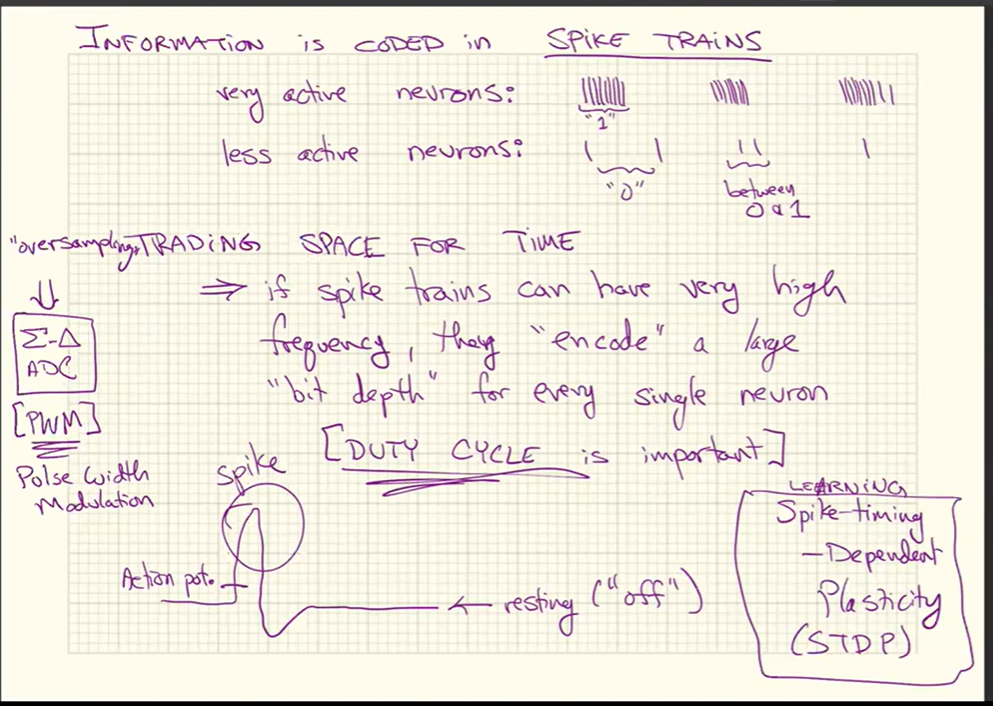 INFORMATION is CODED in SPIKE TRAINS
very active neurons:
"1"
less active neurons:
"0"
between
0 & 1
"oversampling" TRADING SPACE FOR TIME
⇒ if spike trains can have very high
frequency, they "encode" a large
"bit depth" for every single neuron
Σ-Δ
ADC
[PWM]
Pulse Width
Modulation
[DUTY CYCLE is important]
Spike
Action pot.
← resting ("off")
LEARNING
Spike-timing
-Dependent
Plasticity
(STDP)